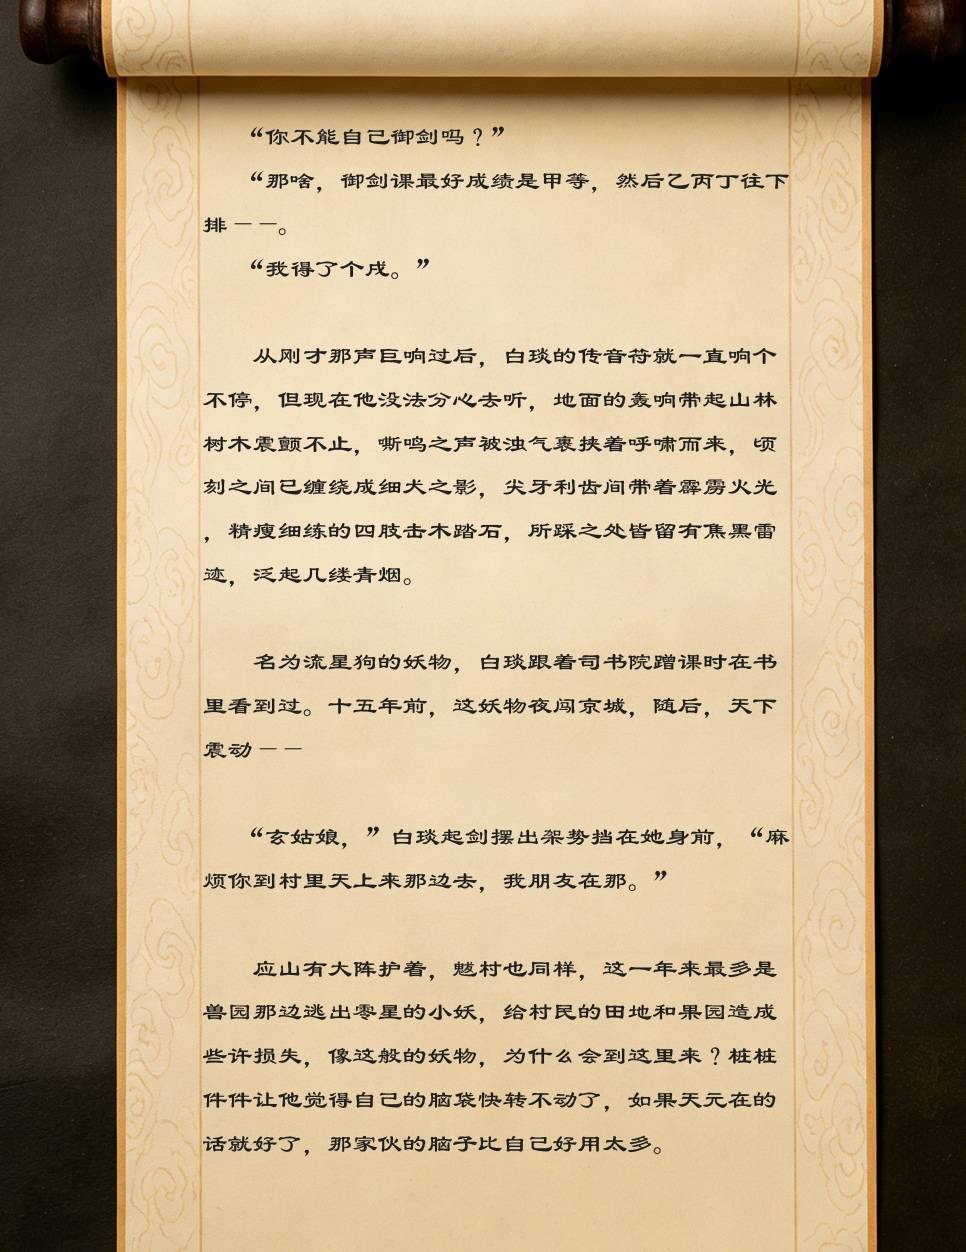 “你不能自己御剑吗？”
“那啥，御剑课最好成绩是甲等，然后乙丙丁往下
排——。
“我得了个戌。”
从刚才那声巨响过后，白琰的传音符就一直响个
不停，但现在他没法分心去听，地面的轰响带起山林
树木震颤不止，嘶鸣之声被浊气裹挟着呼啸而来，顷
刻之间已缠绕成细犬之影，尖牙利齿间带着霹雳火光
，精瘦细练的四肢击木踏石，所踩之处皆留有焦黑雷
迹，泛起几缕青烟。
名为流星狗的妖物，白琰跟着司书院蹭课时在书
里看到过。十五年前，这妖物夜闯京城，随后，天下
震动——
“玄姑娘，”白琰起剑摆出架势挡在她身前，“麻
烦你到村里天上来那边去，我朋友在那。”
应山有大阵护着，魃村也同样，这一年来最多是
兽园那边逃出零星的小妖，给村民的田地和果园造成
些许损失，像这般的妖物，为什么会到这里来？桩桩
件件让他觉得自己的脑袋快转不动了，如果天元在的
话就好了，那家伙的脑子比自己好用太多。